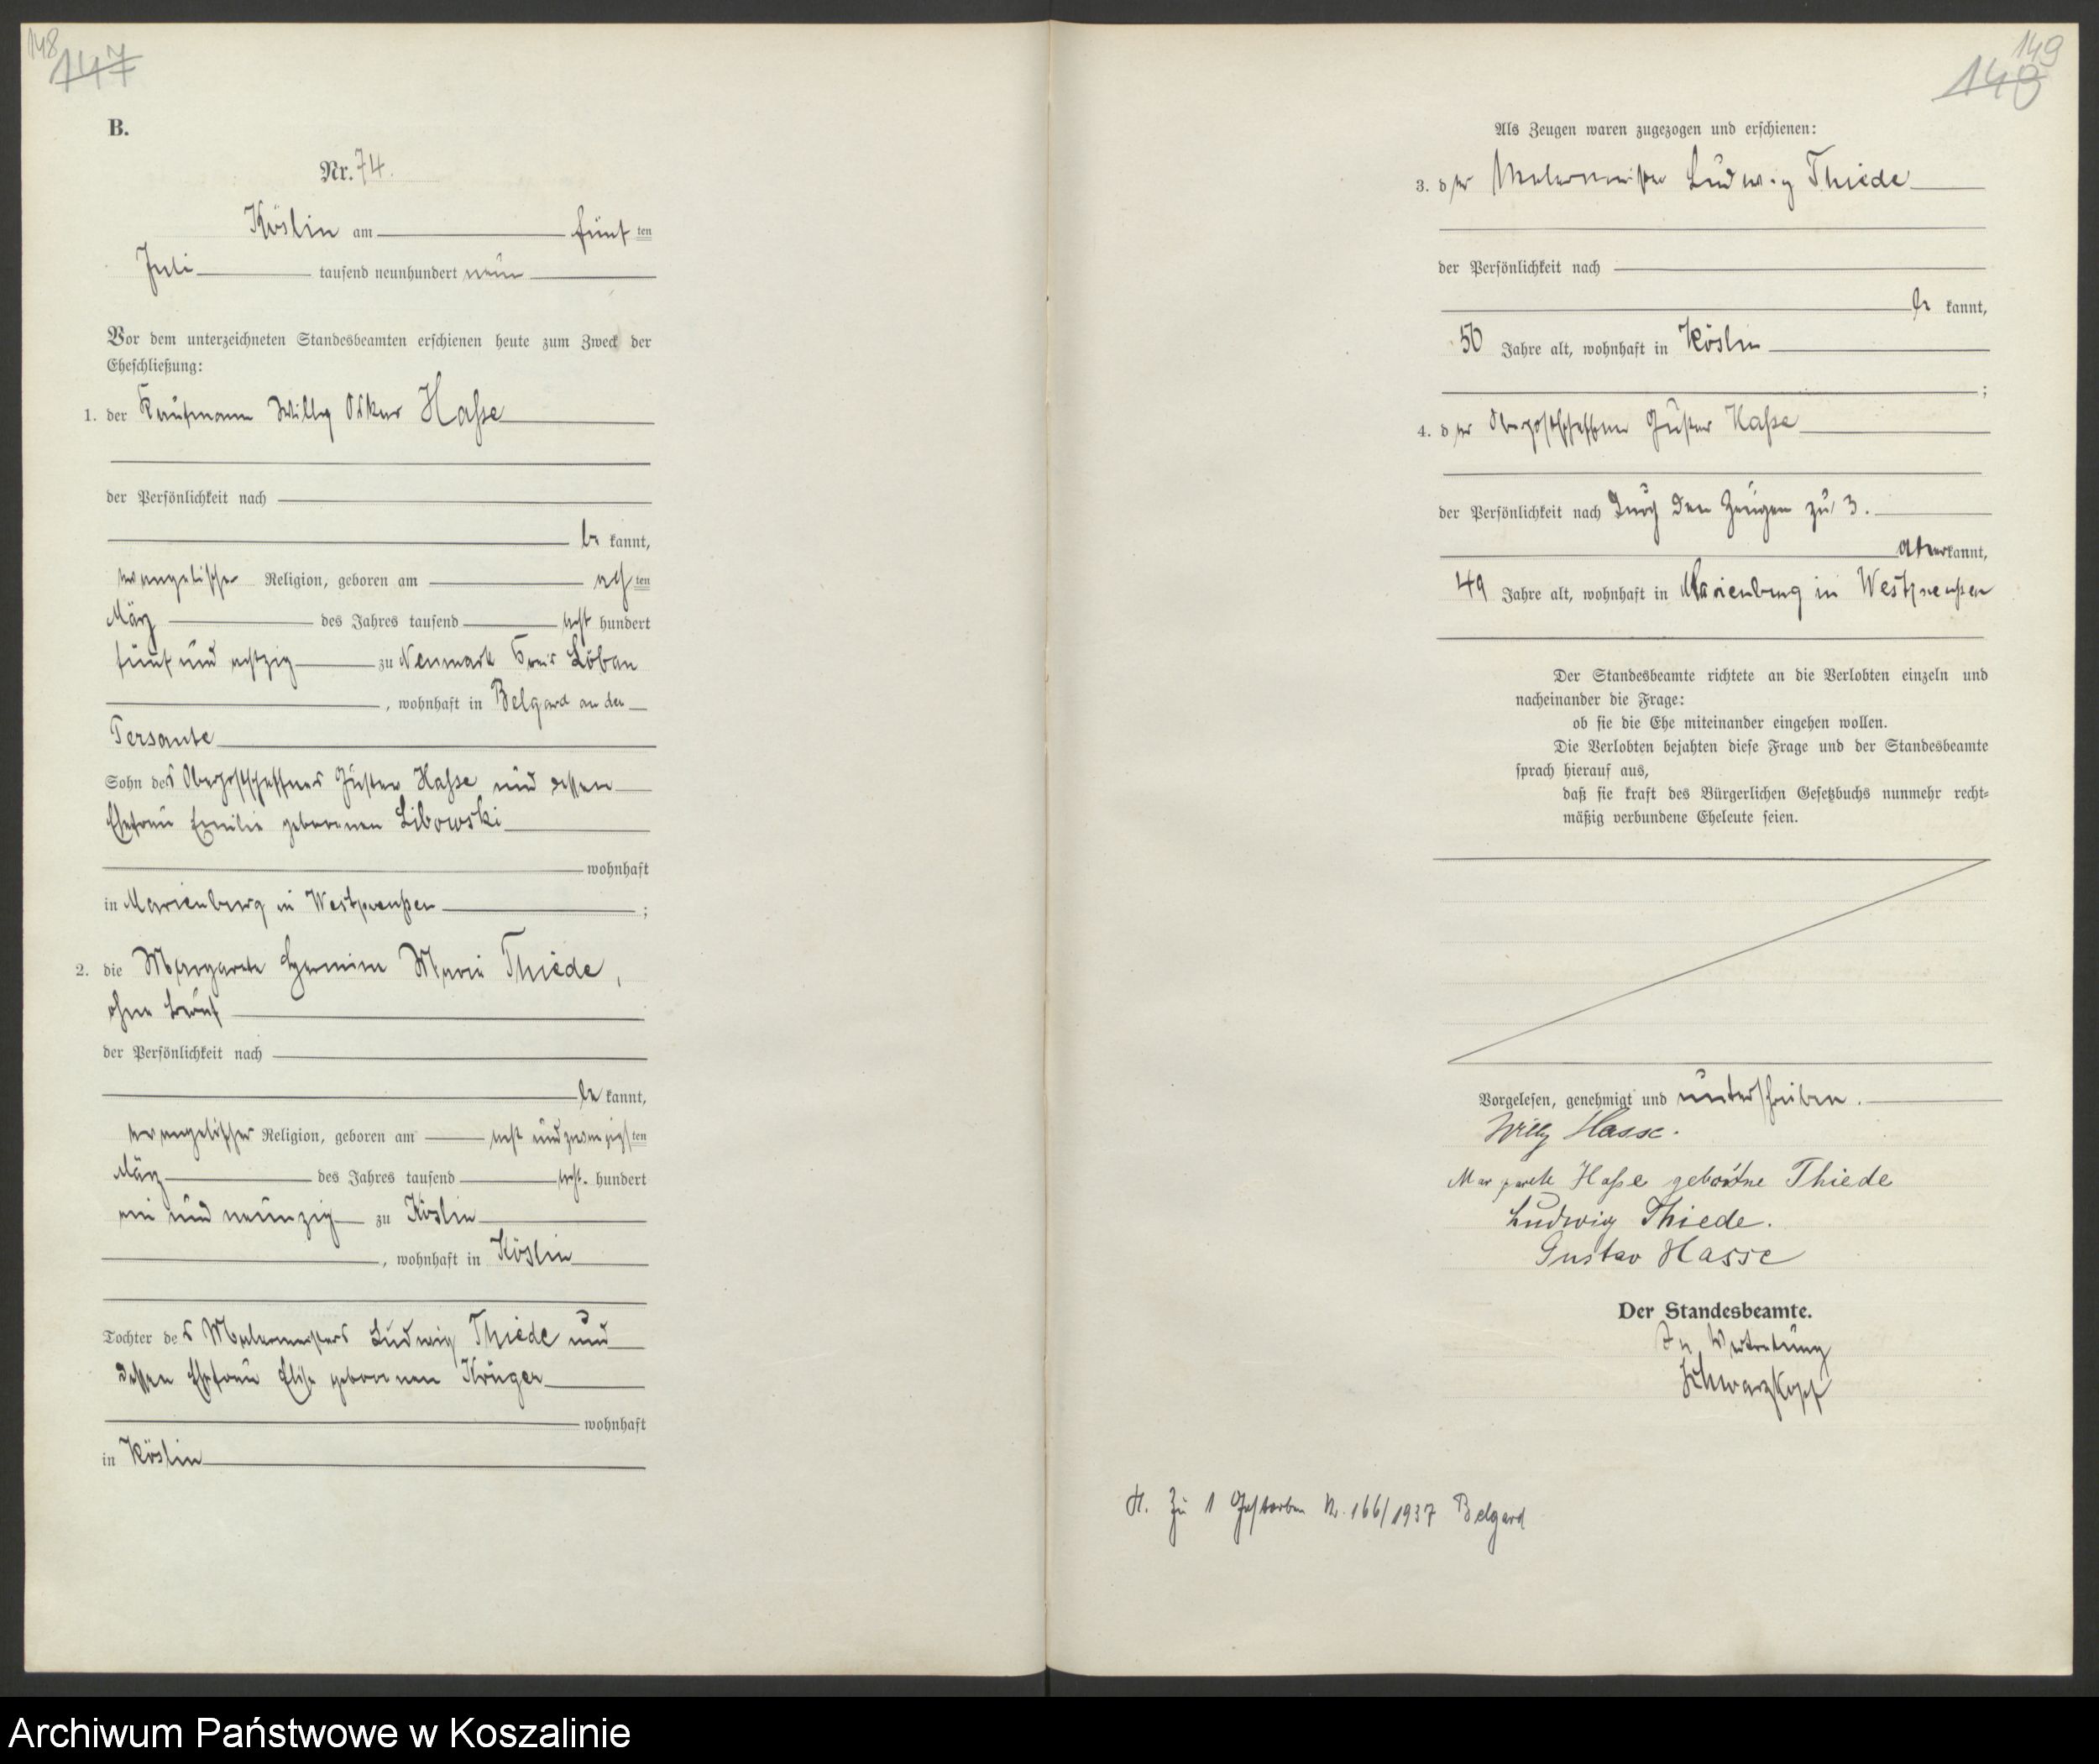 148
147
B.
Nr. 74.
Köslin am fünften
Juli tausend neunhundert neun
Vor dem unterzeichneten Standesbeamten erschienen heute zum Zweck der
Eheschließung:
1. der Kaufmann Willy Oskar Hasse
der Persönlichkeit nach
be kannt,
evangelischer Religion, geboren am achten
März des Jahres tausend acht hundert
fünf und achtzig zu Neumark Kreis Löbau
, wohnhaft in Belgard an der
Persante
Sohn des Oberpostschaffners Gustav Haße und dessen
Ehefrau Emilie geborenen Libowski
wohnhaft
in Marienburg in Westpreußen ;
2. die Margarete Hermine Marie Thiede,
ohne Beruf
der Persönlichkeit nach
be kannt,
evangelischer Religion, geboren am acht und zwanzigsten
März des Jahres tausend acht hundert
ein und neunzig zu Köslin
, wohnhaft in Köslin
Tochter des Malermeisters Ludwig Thiede und
dessen Ehefrau Elise geborenen Krüger
wohnhaft
in Köslin
149
148
Als Zeugen waren zugezogen und erschienen:
3. der Malermeister Ludwig Thiede
der Persönlichkeit nach
be kannt,
50 Jahre alt, wohnhaft in Köslin
;
4. der Oberpostschaffner Gustav Haße
der Persönlichkeit nach durch den Zeugen zu 3.
anerkannt,
49 Jahre alt, wohnhaft in Marienburg in Westpreußen
Der Standesbeamte richtete an die Verlobten einzeln und
nacheinander die Frage:
ob sie die Ehe miteinander eingehen wollen.
Die Verlobten bejahten diese Frage und der Standesbeamte
sprach hierauf aus,
daß sie kraft des Bürgerlichen Gesetzbuchs nunmehr recht-
mäßig verbundene Eheleute seien.
Vorgelesen, genehmigt und unterschrieben.
Willy Hasse.
Margarete Haße geborene Thiede
Ludwig Thiede.
Gustav Hasse
Der Standesbeamte.
In Vertretung
Schwarzkopf
H. Zu 1 Gestorben Nr. 166/1937 Belgard
Archiwum Państwowe w Koszalinie